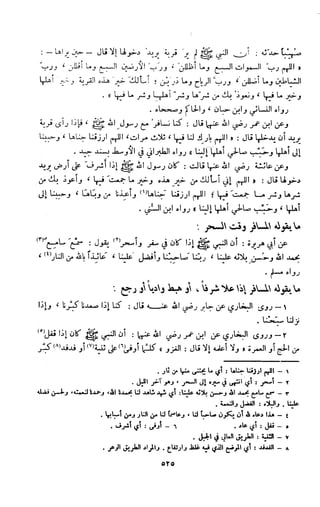 صهيباً حدثه : أن النبي ﷺ لم ير قرية يريد دخولها إلا قال حين يراها :
« اللهم رب السموات السبع وما أظللن ، ورب الأرضين السبع وما أقللن ، ورب
الشياطين وما أضللن ، ورب الرياح وما ذرين : أسألك خير هذه القرية وخير أهلها
وخير ما فيها ، ونعوذ بك من شرها وشر أهلها وشر ما فيها » .
رواه النسائي وابن حبان ، والحاكم وصححاه .
وعن ابن عمر رضي الله عنهما قال : كنا نسافر مع رسول الله ﷺ فإذا رأى قرية
يريد أن يدخلها قال : « اللهم بارك لنا فيها ثلاث مرات ، اللهم ارزقنا جناها ، وحببنا
إلى أهلها وحبب صالحي أهلها إلينا » رواه الطبراني في الأوسط بسند جيد .
وعن عائشة رضي الله عنها قالت : كان رسول الله ﷺ إذا أشرف على أرض يريد
دخولها قال : « اللهم إني أسألك من خير هذه وخير ما جمعت فيها ، وأعوذ بك من
شرها وشر ما جمعت فيها اللهم ارزقنا جناها ، وأعذنا من وباها ، وحببنا إلى
أهلها ، وحبب صالحي أهلها إلينا » رواه ابن السني .
ما يقوله المسافر وقت السحر :
عن أبي هريرة : أن النبي ﷺ كان إذا كان في سفر وأسحر(٢) يقول : سمع سامع(٣)
بحمد الله وحسن بلائه علينا ، ربنا صاحبنا وأفضل علينا ، عائذاً بالله من النار(٤) »
رواه مسلم .
ما يقوله المسافر إذا علا شرفاً . أو هبط وادياً أو رجع :
١ – روى البخاري عن جابر رضي الله عنه قال : كنا إذا صعدنا كبرنا ، وإذا
نزلنا سبحنا .
٢ – وروى البخاري عن ابن عمر رضي الله عنهما : أن النبي ﷺ كان إذا قفل(٥)
من الحج أو العمرة ، ولا أعلمه إلا قال : الغزو ، كلما أوفى(٦) على ثنية(٧) أو فدفد(٨) كبر
١ – اللهم ارزقنا جناها : أي ما يجتنى منها من ثمار .
٢ – أسحر : أي انتهى في سيره إلى السحر ، وهو آخر الليل .
٣ – سمع سامع بحمد الله وحسن بلائه علينا : أي شهد شاهد لنا بحمدنا الله ، وحمدنا لنعمته ، ولحسن فضله
علينا . والبلاء : الفضل والنعمة .
٤ – هذا دعاء لله أن يكون صاحباً لنا ، وعاصماً لنا من النار ومن أسبابها .
٥ – قفل : أي عاد . ٦ – أوفى : أي أشرف .
٧ – الثنية : الطريق العالي في الجبل .
٨ – الفدفد : أي الموضع الذي فيه غلظ وارتفاع . والمراد الطريق الوعر .
٥٢٥